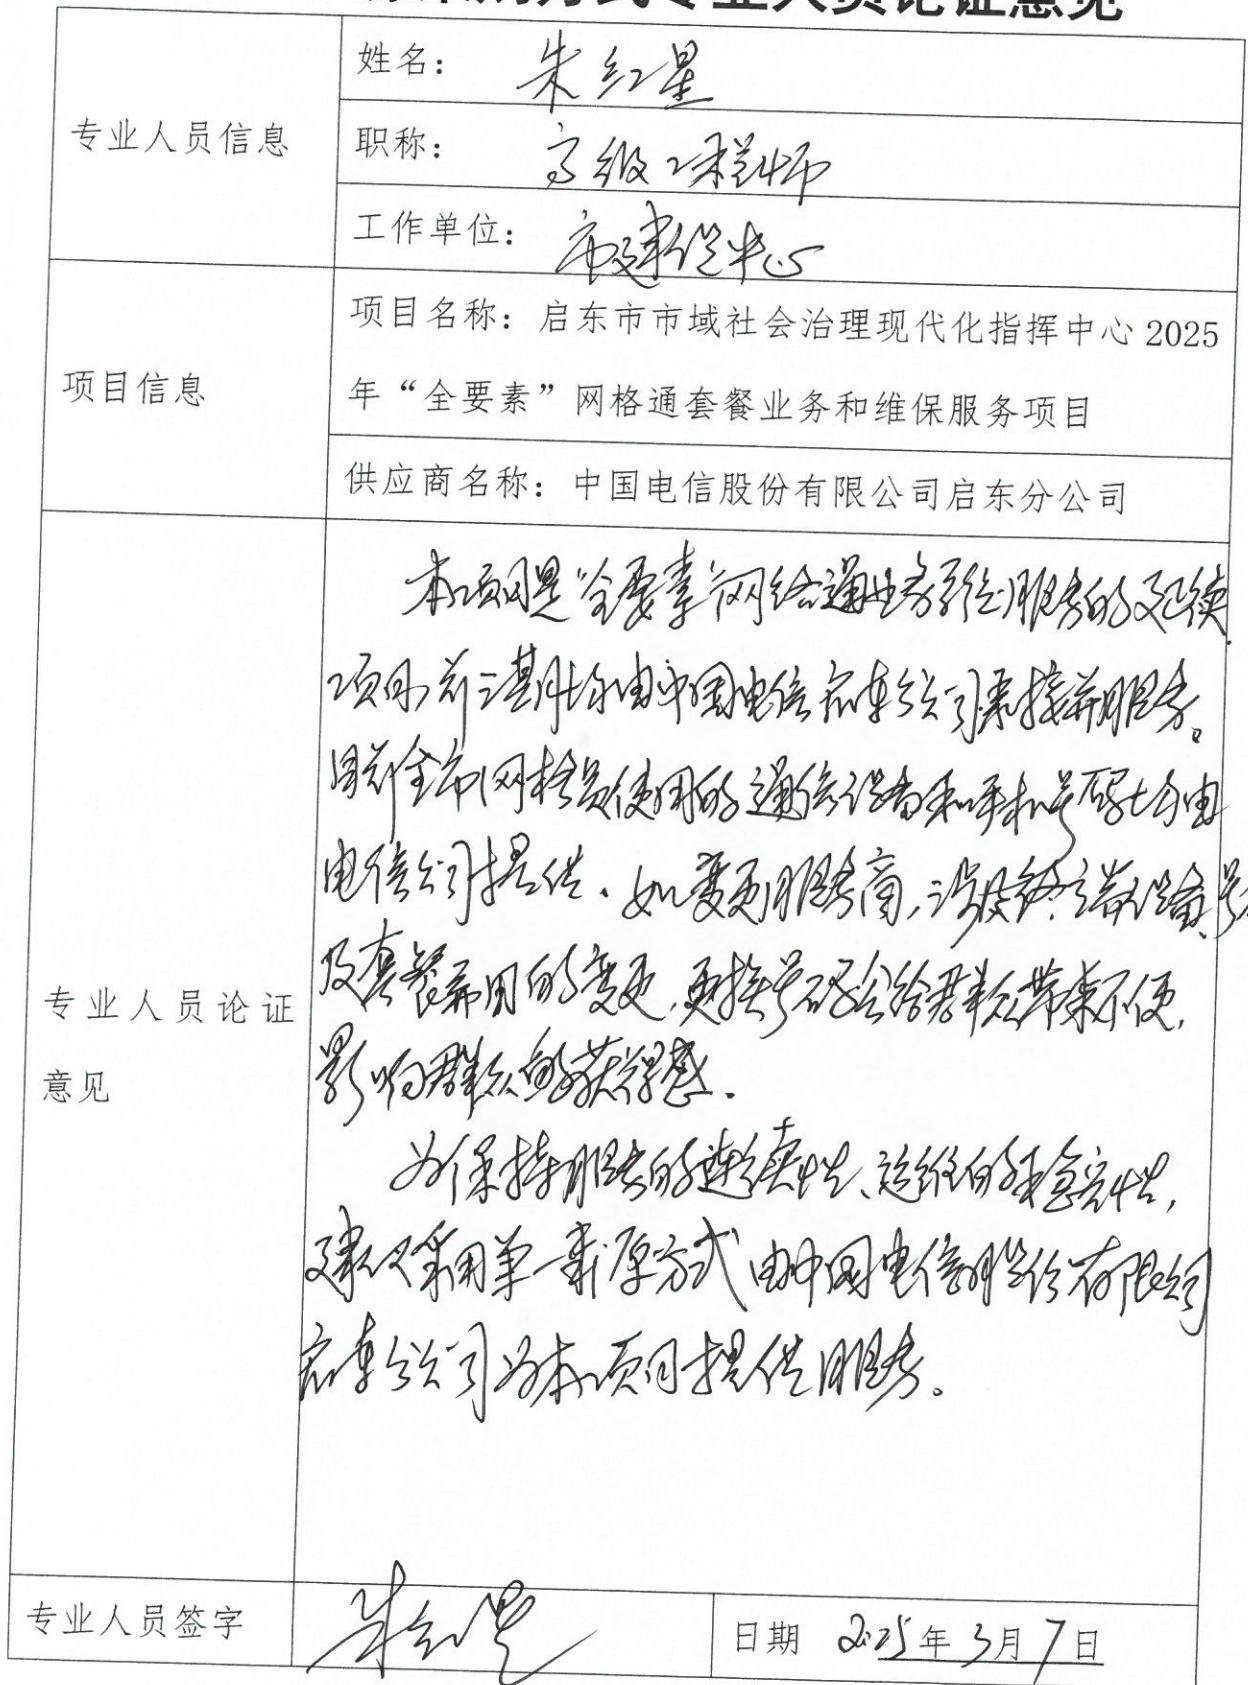 方式专业人员论证意见
专业人员信息
姓名: 朱红星
职称: 高级工程师
工作单位: 市建设中心
项目信息
项目名称: 启东市市域社会治理现代化指挥中心 2025
年“全要素”网格通套餐业务和维保服务项目
供应商名称: 中国电信股份有限公司启东分公司
专业人员论证
意见
本项目是“全要素”网络通业务系统服务的延续,
项目前三期均由中国电信启东分公司承接并服务。
目前全市网格员使用的通信设备和手机号码均由
电信公司提供. 如变更服务商,涉及终端设备、号
及套餐费用的变更,更换号码会给群众带来不便,
影响群众的获得感.
为保持服务的连续性、运维的稳定性,
建议采用单一来源方式由中国电信股份有限公司
启东分公司为本项目提供服务。
专业人员签字
朱红星
日期 2025年3月7日